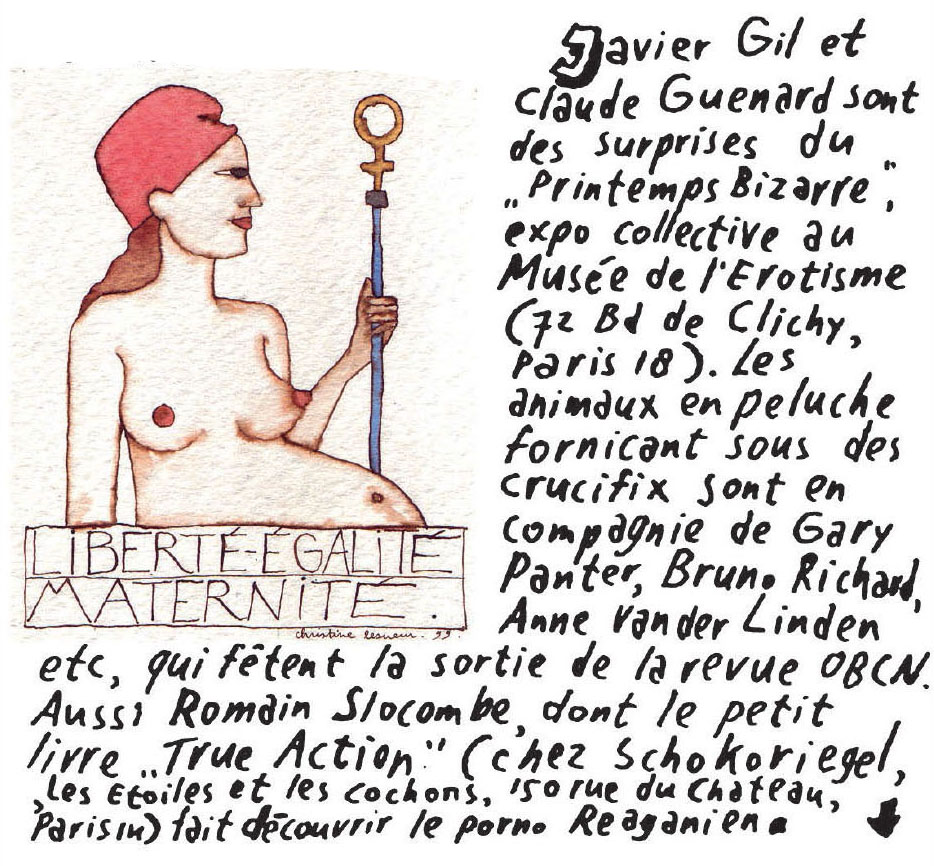 Javier Gil et
Claude Guenard sont
des surprises du
„Printemps Bizarre",
expo collective au
Musée de l'Erotisme
(72 Bd de Clichy,
Paris 18). Les
animaux en peluche
fornicant sous des
crucifix sont en
compagnie de Gary
Panter, Bruno Richard,
Anne Van der Linden
etc, qui fêtent la sortie de la revue OBCN.
Aussi Romain Slocombe, dont le petit
livre „True Action" (chez Schokoriegel,
Les Etoiles et les cochons, 150 rue du Chateau,
Paris 14) fait découvrir le porno Reaganien.
LIBERTÉ-ÉGALITÉ
MATERNITÉ.
christine lesueur. 99.